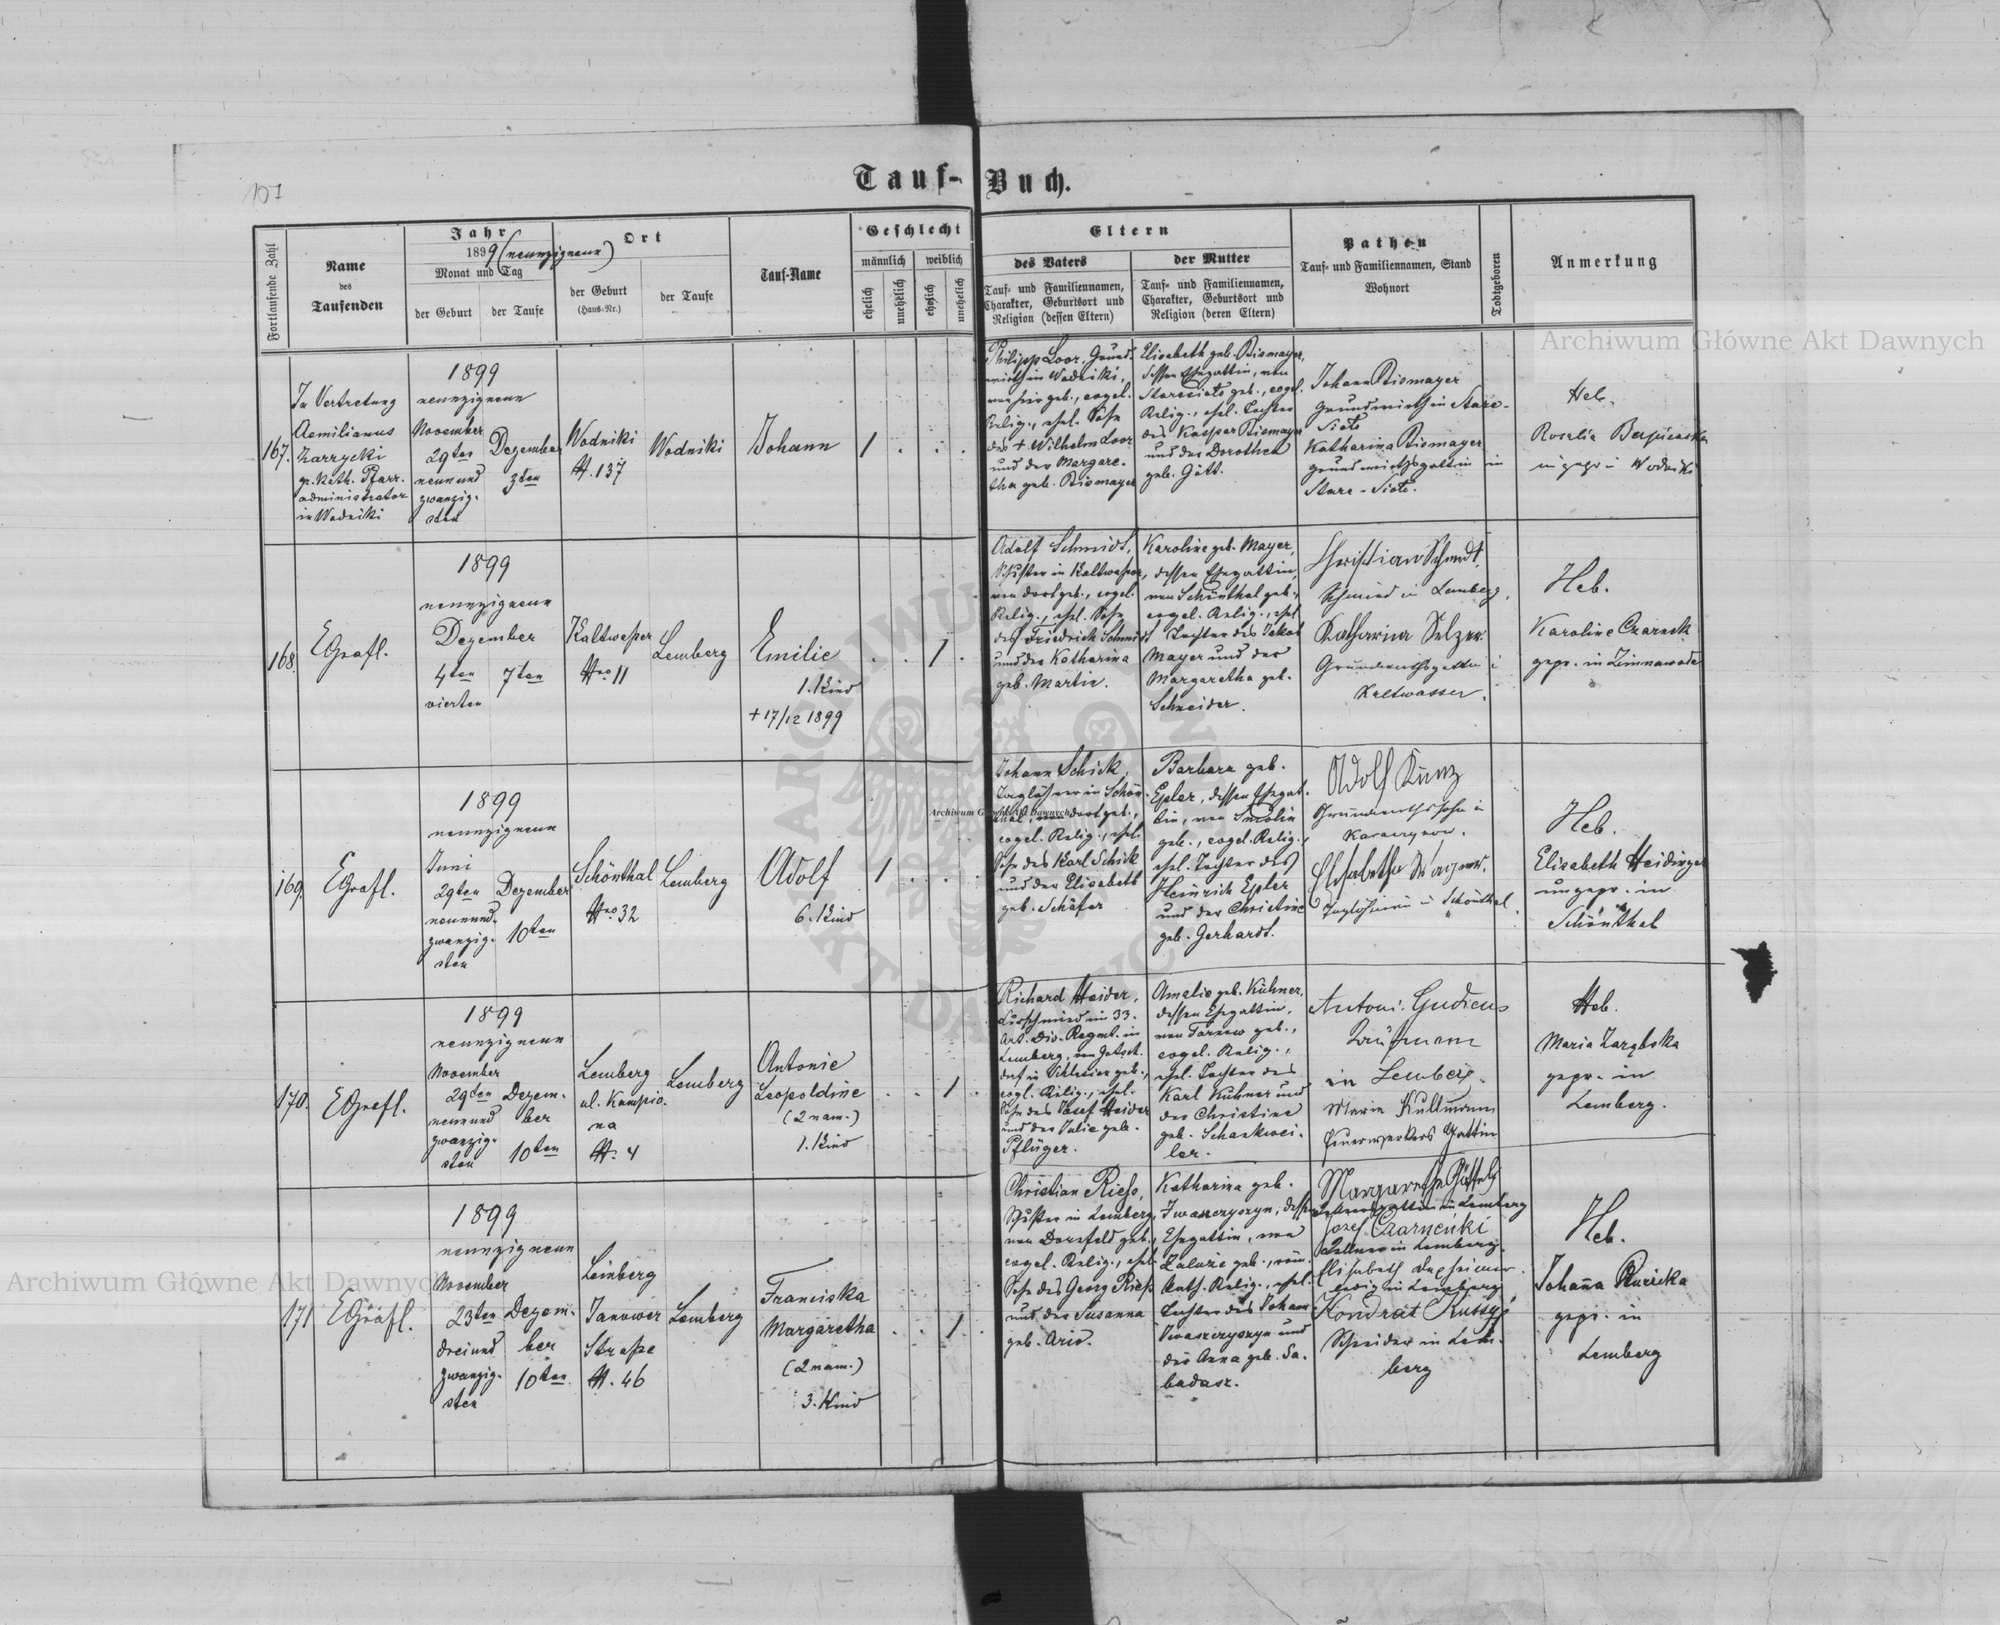 107
Tauf-Buch.
Fortlaufende Zahl
Name
des
Taufenden
Jahr
1899 (neunzigneun)
Monat und Tag
der Geburt
der Taufe
Ort
der Geburt
(Haus-Nr.)
der Taufe
Tauf-Name
Geschlecht
männlich
weiblich
ehelich
unehelich
ehelich
unehelich
Eltern
des Vaters
Tauf- und Familiennamen,
Charakter, Geburtsort und
Religion (dessen Eltern)
der Mutter
Tauf- und Familiennamen,
Charakter, Geburtsort und
Religion (deren Eltern)
Pathen
Tauf- und Familiennamen, Stand
Wohnort
Todtgeboren
Anmerkung
167.
In Vertretung
Aemilianus
Zarzycki
gr. kath. Pfarr-
administrator
in Wodniki
1899
neunzigneun
November
29ten
neunund
zwanzig-
sten
Dezember
3ten
Wodniki
N. 137
Wodniki
Johann
1
Philipp Loor, Grund-
wirth in Wodniki,
von hier geb., evgel.
Relig., ehel. Sohn
des + Wilhelm Loor
und der Margare-
tha geb. Bismayer
Elisabeth geb. Bismayer,
dessen Ehegattin, von
geb., evgel.
Relig., ehel. Tochter
des Kaspar Bismayer
und der Dorothea
geb. Gött.
Johann Bismayer
Grundwirth in Stare-
Siolo
Katharina Bismayer
Grundwirthsgattin in
Stare-Siolo.
Heb.
Rosalia
ungepr. in Wodniki
168.
EGrafl.
1899
neunzigneun
Dezember
4ten
vierten
7ten
Kaltwasser
Nro 11
Lemberg
Emilie
1. Kind
+ 17/12 1899
1
Adolf Schmidt,
Schuster in Kaltwasser,
von dort geb., evgel.
Relig., ehel. Sohn
des Friedrich Schmidt
und der Katharina
geb. Martin.
Karoline geb. Mayer,
dessen Ehegattin,
von Schönthal geb.,
evgel. Relig., ehel.
Tochter des Jakob
Mayer und der
Margaretha geb.
Schneider.
Christian Schmidt,
Schmied in Lemberg,
Katharina Selzer
Grundwirthsgattin i
Kaltwasser.
Heb.
Karoline Czarnek
gepr. in Zimnawoda
169.
EGrafl.
1899
neunzigneun
Juni
29ten
neunund-
zwanzig-
sten
Dezember
10ten
Schönthal
Nro 32
Lemberg
Adolf
6. Kind
1
Johann Schick,
Taglöhner in Schön-
thal, von dort geb.,
evgel. Relig., ehel.
Sohn des Karl Schick
und der Elisabeth
geb. Schäfer
Barbara geb.
Epler, dessen Ehegat-
tin, von Smolin
geb., evgel. Relig.,
ehel. Tochter des
Heinrich Epler
und der Christine
geb. Gerhardt.
Adolf Kunz
Grundwirthssohn in
Elisabetha Wagner,
Taglöhnerin in Schönthal.
Heb.
Elisabeth Heidinger
ungepr. in
Schönthal
170.
EGrafl.
1899
neunzigneun
November
29ten
neunund
zwanzig-
sten
Dezem-
ber
10ten
Lemberg
ul. Kampia-
na
N. 4
Lemberg
Antonie
Leopoldine
(2 nam.)
1. Kind
1
Richard Heider,
Kurschmied im 33.
Art. Div. Regmt. in
Lemberg, von
dorf in Schlesien geb.,
evgl. Relig., ehel.
Sohn des Josef Heider
und der Julie geb.
Pflüger.
Amalie geb. Kühner,
dessen Ehegattin,
von Tarnow geb.,
evgel. Relig.,
ehel. Tochter des
Karl Kühner und
der Christine
geb. Schankwei-
ler.
Antoni Gudiens
Kaufmann
in Lemberg.
Marie Kullmann
Feuerwerkers Gattin
Heb.
Maria Zarębska
gepr. in
Lemberg.
171
EGrafl.
1899
neunzigneun
November
23ten
dreiund
zwanzig-
sten
Dezem-
ber
10ten
Lemberg
Janower
Strasse
N. 46
Lemberg
Franciska
Margaretha
(2 nam.)
3. Kind
1
Christian Riess,
Schuster in Lemberg,
von Dornfeld geb.,
evgel. Relig., ehel.
Sohn des Georg Riess
und der Susanna
geb. Arid.
Katharina geb.
Iwaszczyszyn, dessen
Ehegattin, von
Zaluże geb., röm.
kath. Relig., ehel.
Tochter des Johann
Iwaszczyszyn und
der Anna geb. Sa-
badasz.
Margarethe
in Lemberg
Josef Czarneńki
Kellner in Lemberg.
Elisabeth
ledig in Lemberg
Kondrat Kussyj
Schneider in Lem-
berg
Heb.
Johanna Ruzicka
gepr. in
Lemberg
Archiwum Główne Akt Dawnych
Archiwum Główne Akt Dawnych
Archiwum Główne Akt Dawnych
ARCHIWUM GŁÓWNE AKT DAWNYCH